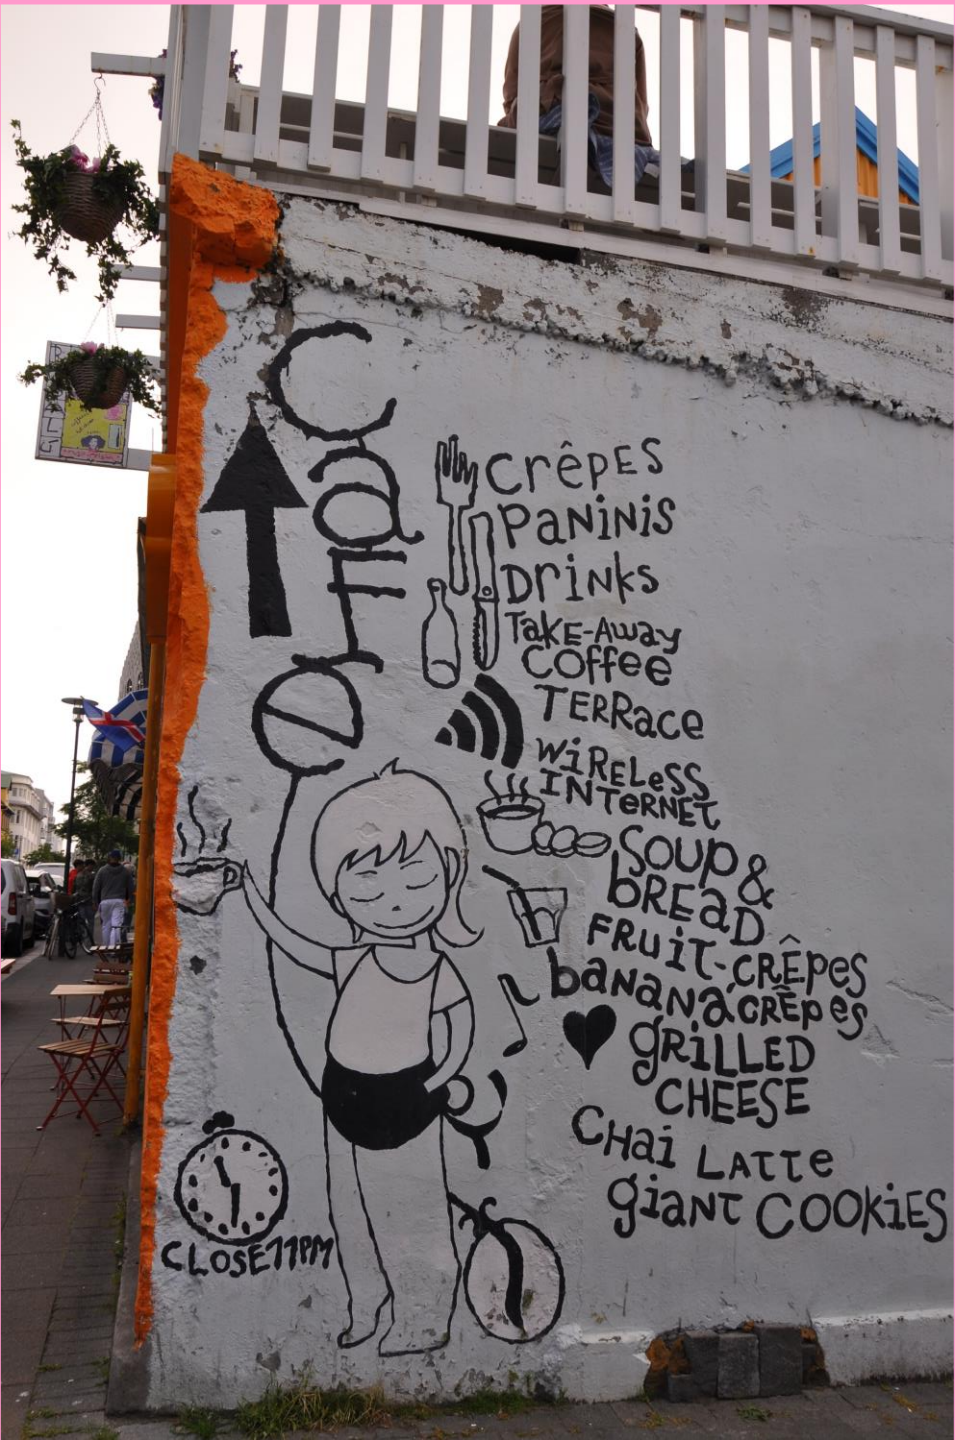 CaFe
CrêPES
PaNiNiS
DriNkS
TaKE-Away
Coffee
TERRace
WiRELeSS
INTeRNET
SOUP &
bREaD
FRUiT-CRÊPes
baNaNa CRÊPes
gRiLLED
CHEESE
CHai LATTe
giaNT COOKiES
CLOSE 11PM